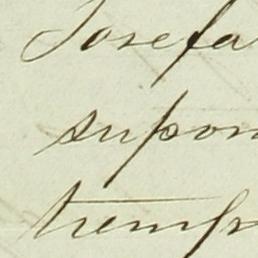 Josefa
supon
tiemp